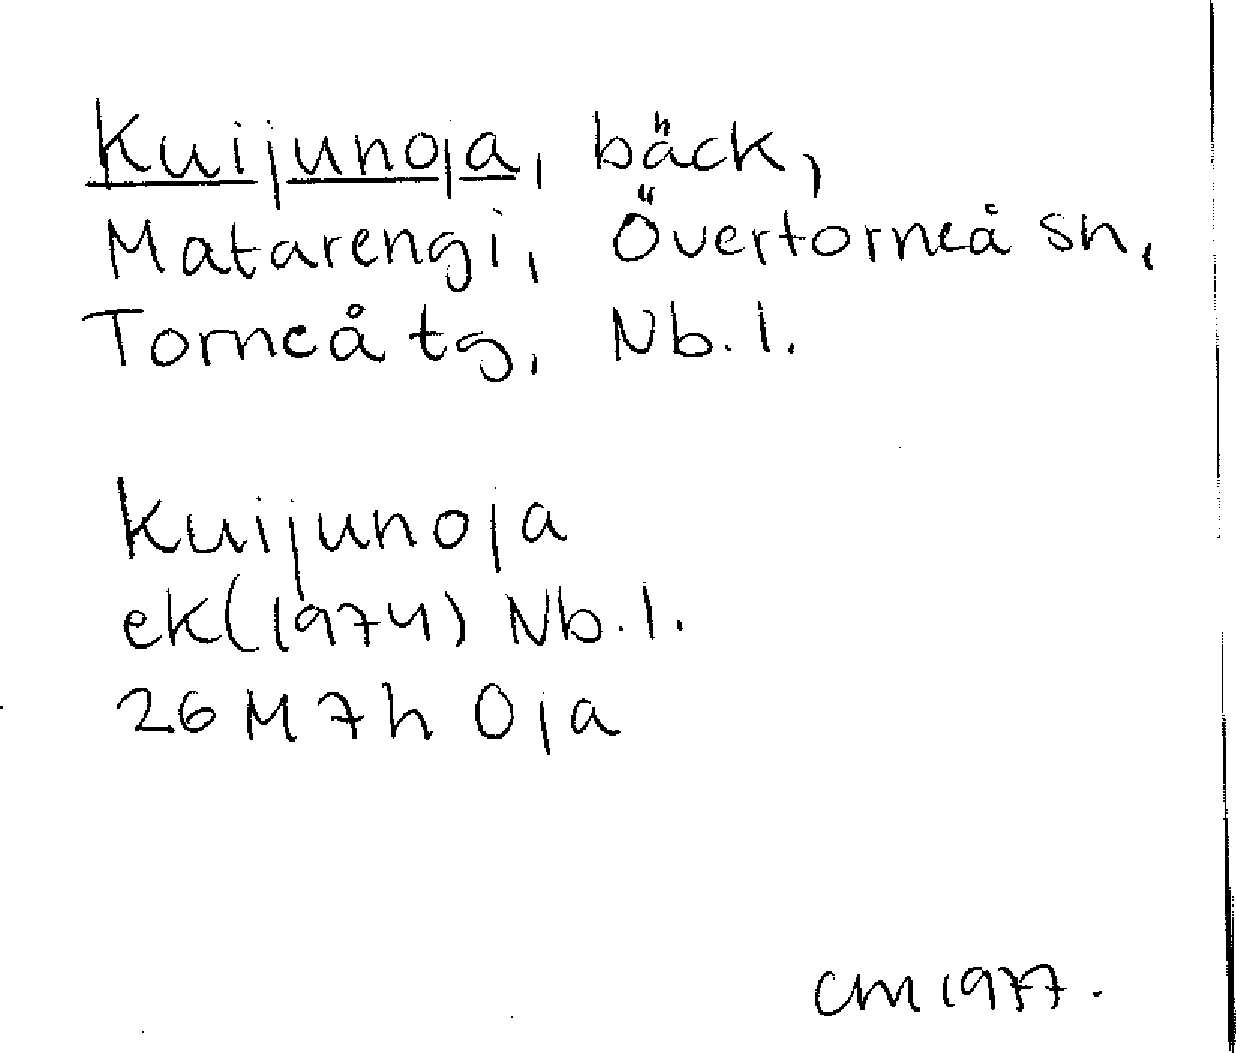 Kuijunoja, bäck,
Matarengi, Övertorneå sn,
Torneå tg, Nb. l.
Kuijunoja
ek(1974) Nb. l.
26 M 7h Oja
CM 1977.